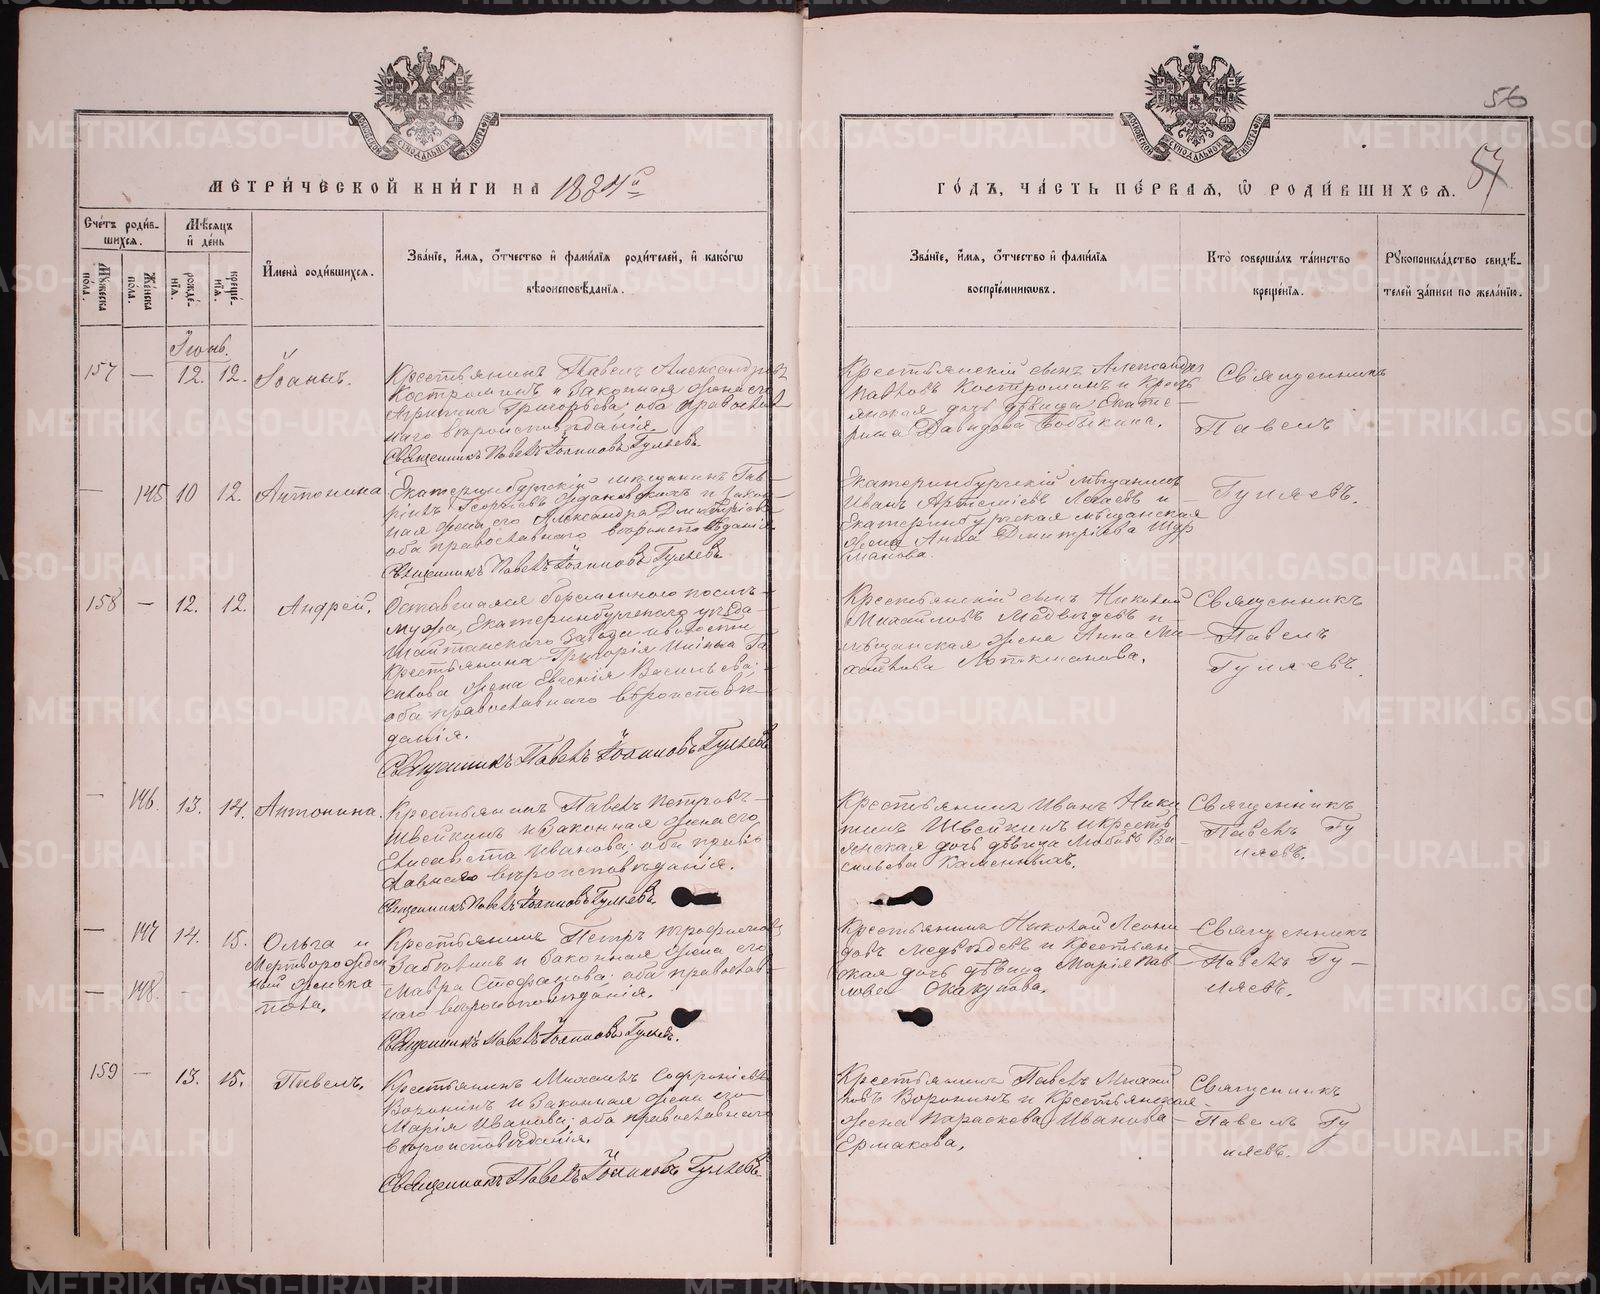 56
57
МЕТРИ́ЧЕСКОЙ КНИ́ГИ НА 1884й
ГО́ДЪ, ЧА́СТЬ ПЕ́РВАЯ, Ѡ РОДИ́ВШИХСЯ.
Сче́тъ роди́в-
шихся.
Мѣ́сяцъ
и де́нь
Имена̀ роди́вшихся.
Зва́нїе, и́мя, о́тчество и фами́лїя роди́телей, и како́гѡ
вѣроисповѣ́данїя.
Му́жеска
по́ла.
Же́нска
по́ла.
рожде́-
нїя.
креще́-
нїя.
Зва́нїе, и́мя, о́тчество и фами́лїя
воспрїе́мниковъ.
Кто̀ соверша́лъ та́инство
креще́нїя.
Рукоприкла́дство свидѣ́-
телей за́писи по жела́нїю.
Іюнь.
157 — 12. 12. Іоаннъ.
Крестьянинъ Павелъ Александровъ
Костроминъ и законная жена его
Агрипина Григорьева; оба православ
наго вѣроисповѣданія.
Священникъ Павелъ Іоанновъ Гуляевъ
Крестьянскій сынъ Александръ
Павловъ Костроминъ и кресть
янская дочь дѣвица Екате-
рина Давидова Бабыкина.
Священникъ
Павелъ
Гуляевъ.
— 145 10 12. Антонина
Екатеринбургскій мѣщанинъ Гав-
ріилъ Георгіевъ и закон-
ная жена его Александра Дмитріева
оба православнаго вѣроисповѣданія
Священникъ Павелъ Іоанновъ Гуляевъ
Екатеринбургскій мѣщанинъ
Иванъ Артеміевъ и
Екатеринбургская мѣщанская
жена Анна Дмитріева Шур
манова.
158 — 12. 12. Андрей.
Оставшаяся беременною послѣ
мужа, Екатеринбургскаго уѣзда
Шайтанскаго завода и волости
Крестьянина Григорія Ильина
жена Евгенія Васильева;
оба православнаго вѣроисповѣ-
данія.
Священникъ Павелъ Іоанновъ Гуляевъ
Крестьянскій сынъ Николай
Михайловъ Медвѣдевъ и
мѣщанская жена Анна Ми-
хайлова
Священникъ
Павелъ
Гуляевъ.
— 146. 13. 14. Антонина.
Крестьянинъ Павелъ Петровъ
Швейкинъ и законная жена его
Елисавета Иванова; оба право
славнаго вѣроисповѣданія.
Священникъ Павелъ Іоанновъ Гуляевъ.
Крестьянинъ Иванъ Ники
тинъ Швейкинъ и кресть
янская дочь дѣвица Любовь Ва-
сильева Каменныхъ.
Священникъ
Павелъ Гу
ляевъ.
— 147 14. 15. Ольга и
Мертворожден
— 148. — — ный женска
пола.
Крестьянинъ Петръ Трофимовъ
Забѣлинъ и законная жена его
Мавра Стефанова; оба православ-
наго вѣроисповѣданія.
Священникъ Павелъ Іоанновъ Гуляевъ.
Крестьянинъ Николай Леони
довъ Медвѣдевъ и крестьян-
ская дочь дѣвица Марія Пав-
лова Окакулова.
Священникъ
Павелъ Гу-
ляевъ.
159 — 13. 15. Павелъ.
Крестьянинъ Михаилъ Софроніевъ
Воронинъ и законная жена его
Марія Иванова; оба православнаго
вѣроисповѣданія.
Священникъ Павелъ Іоанновъ Гуляевъ
Крестьянинъ Павелъ Михай
ловъ Воронинъ и крестьянская
жена Параскева Иванова
Ермакова.
Священникъ
Павелъ Гу
ляевъ.